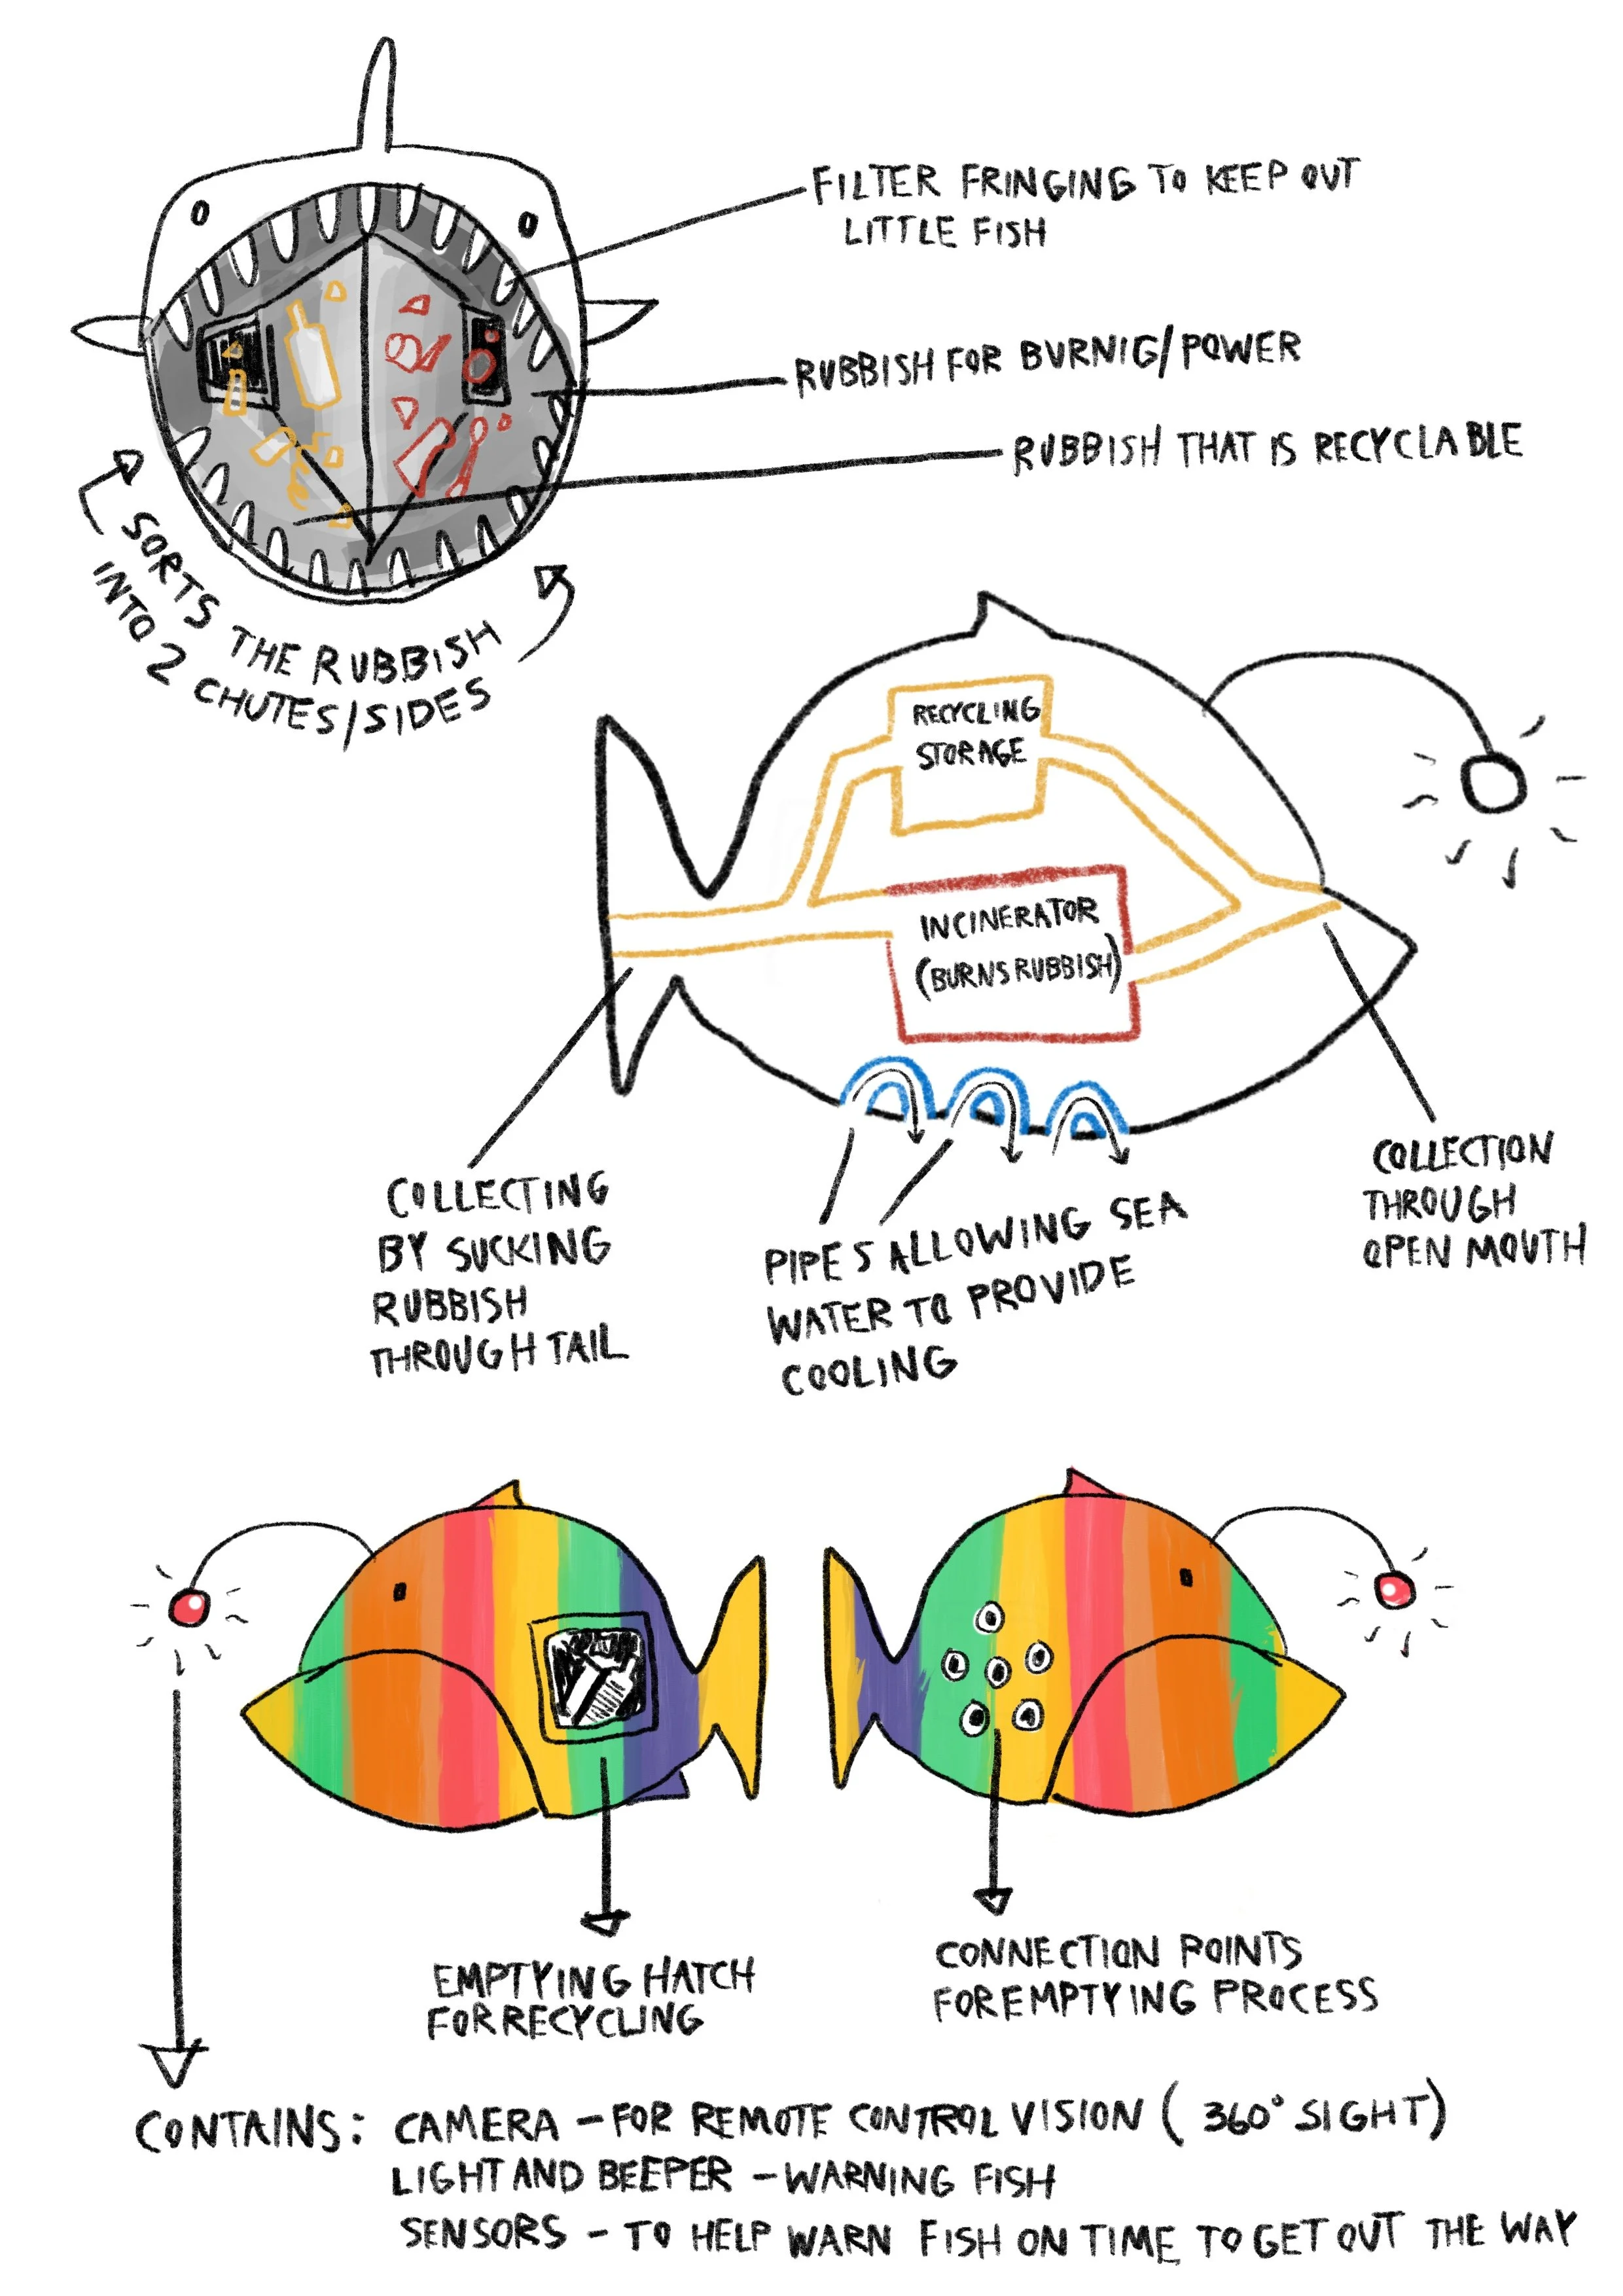 FILTER FRINGING TO KEEP OUT
LITTLE FISH
RUBBISH FOR BURNIG/POWER
RUBBISH THAT IS RECYCLABLE
SORTS THE RUBBISH
INTO 2 CHUTES/SIDES
RECYCLING
STORAGE
INCINERATOR
(BURNS RUBBISH)
COLLECTING
BY SUCKING
RUBBISH
THROUGH TAIL
PIPES ALLOWING SEA
WATER TO PROVIDE
COOLING
COLLECTION
THROUGH
OPEN MOUTH
EMPTYING HATCH
FOR RECYCLING
CONNECTION POINTS
FOR EMPTYING PROCESS
CONTAINS: CAMERA - FOR REMOTE CONTROL VISION (360° SIGHT)
LIGHT AND BEEPER - WARNING FISH
SENSORS - TO HELP WARN FISH ON TIME TO GET OUT THE WAY